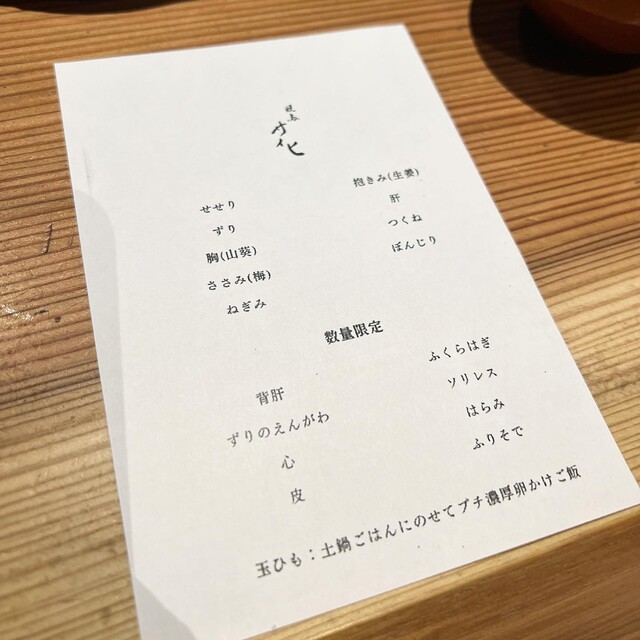 せせり
ずり
胸(山葵)
ささみ(梅)
ねぎみ
抱きみ(生姜)
肝
つくね
ぼんじり
数量限定
背肝
ずりのえんがわ
心
皮
ふくらはぎ
ソリレス
はらみ
ふりそで
玉ひも：土鍋ごはんにのせてプチ濃厚卵かけご飯